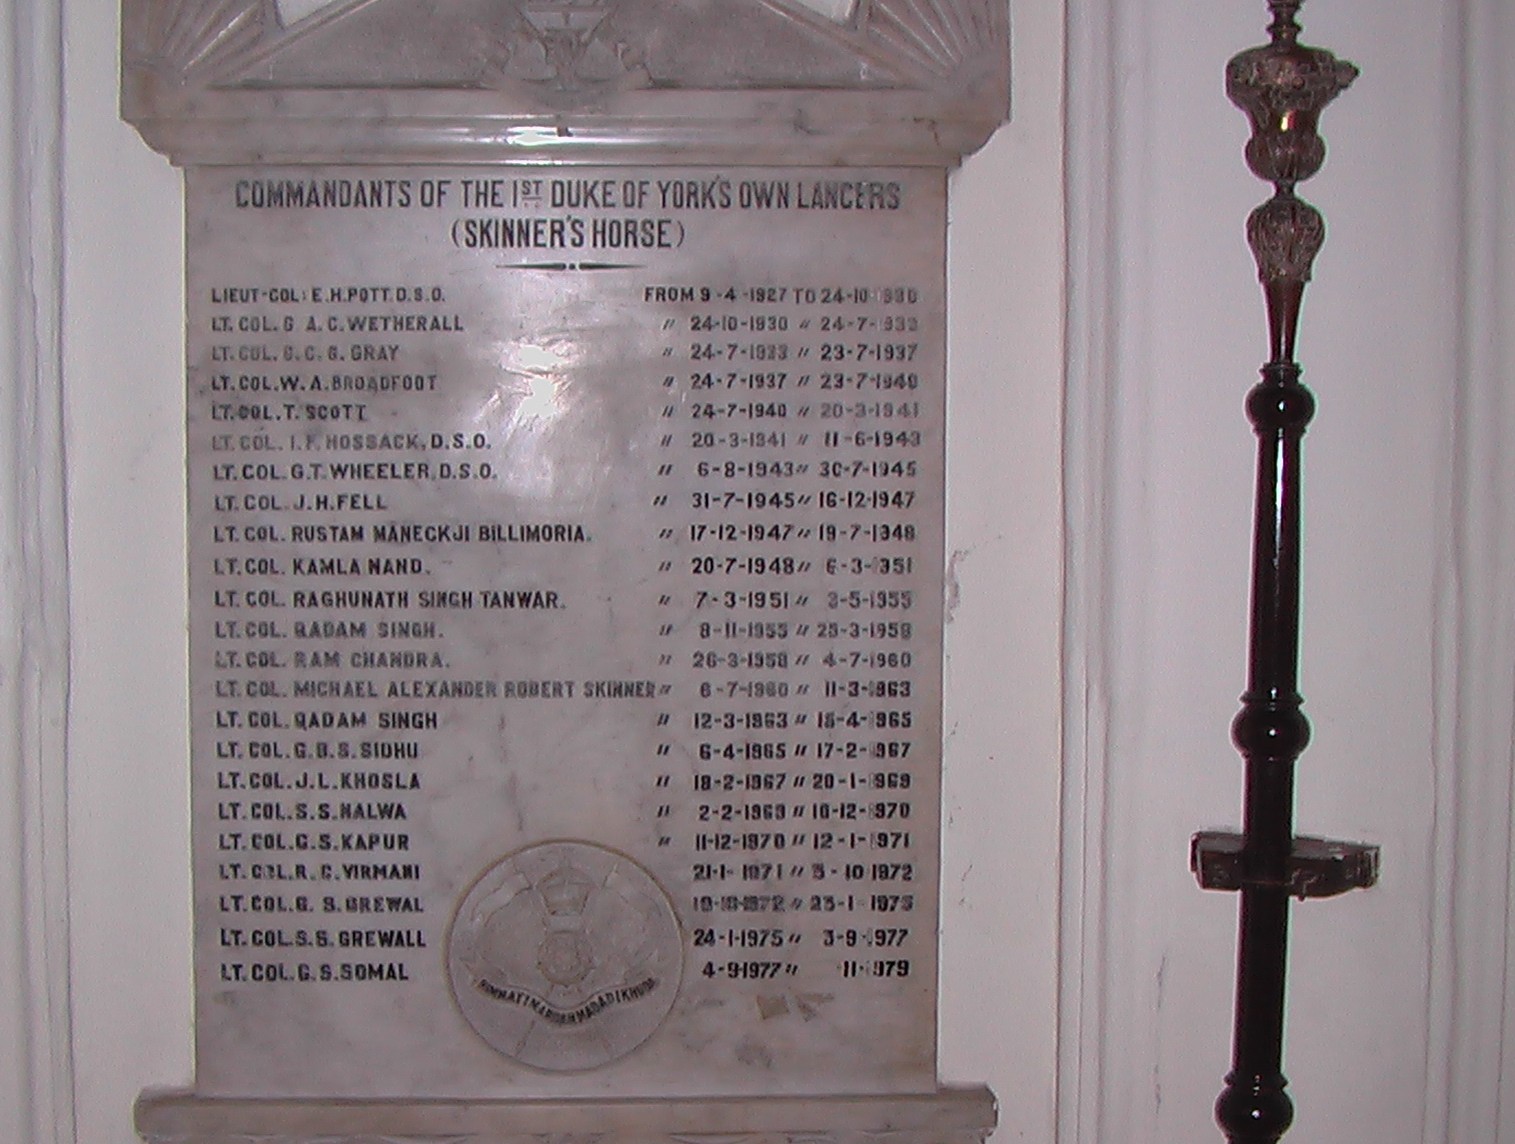 COMMANDANTS OF THE 1ST DUKE OF YORK'S OWN LANCERS
(SKINNER'S HORSE)
LIEUT-COL: E.H.POTT.D.S.O. FROM 9-4-1927 TO 24-10-1930
LT. COL. G A.C. WETHERALL " 24-10-1930 " 24-7-1933
LT. COL. G.C.G. GRAY " 24-7-1933 " 23-7-1937
LT. COL. W.A. BROADFOOT " 24-7-1937 " 23-7-1940
LT. COL. T. SCOTT " 24-7-1940 " 20-3-1941
LT. COL. I.F. HOSSACK, D.S.O. " 20-3-1941 " 11-6-1943
LT. COL. G.T. WHEELER, D.S.O. " 6-8-1943 " 30-7-1945
LT. COL. J.H. FELL " 31-7-1945 " 16-12-1947
LT. COL. RUSTAM MANECKJI BILLIMORIA. " 17-12-1947 " 19-7-1948
LT. COL. KAMLA NAND. " 20-7-1948 " 6-3-1951
LT. COL. RAGHUNATH SINGH TANWAR. " 7-3-1951 " 3-5-1955
LT. COL. QADAM SINGH. " 8-11-1955 " 25-3-1958
LT. COL. RAM CHANDRA. " 26-3-1958 " 4-7-1960
LT. COL. MICHAEL ALEXANDER ROBERT SKINNER " 6-7-1960 " 11-3-1963
LT. COL. QADAM SINGH " 12-3-1963 " 15-4-1965
LT. COL. G.B.S. SIDHU " 6-4-1965 " 17-2-1967
LT. COL. J.L. KHOSLA " 18-2-1967 " 20-1-1969
LT. COL. S.S. NALWA " 2-2-1969 " 10-12-1970
LT. COL. G.S. KAPUR " 11-12-1970 " 12-1-1971
LT. COL. R.C. VIRMANI 21-1-1971 " 5-10-1972
LT. COL. G. S. GREWAL " 23-1-1975
LT. COL. S.S. GREWALL 24-1-1975 " 3-9-1977
LT. COL. G.S. SOMAL 4-9-1977 " 11-1979
HIMMAT I MARDAN MADAD I KHUDA